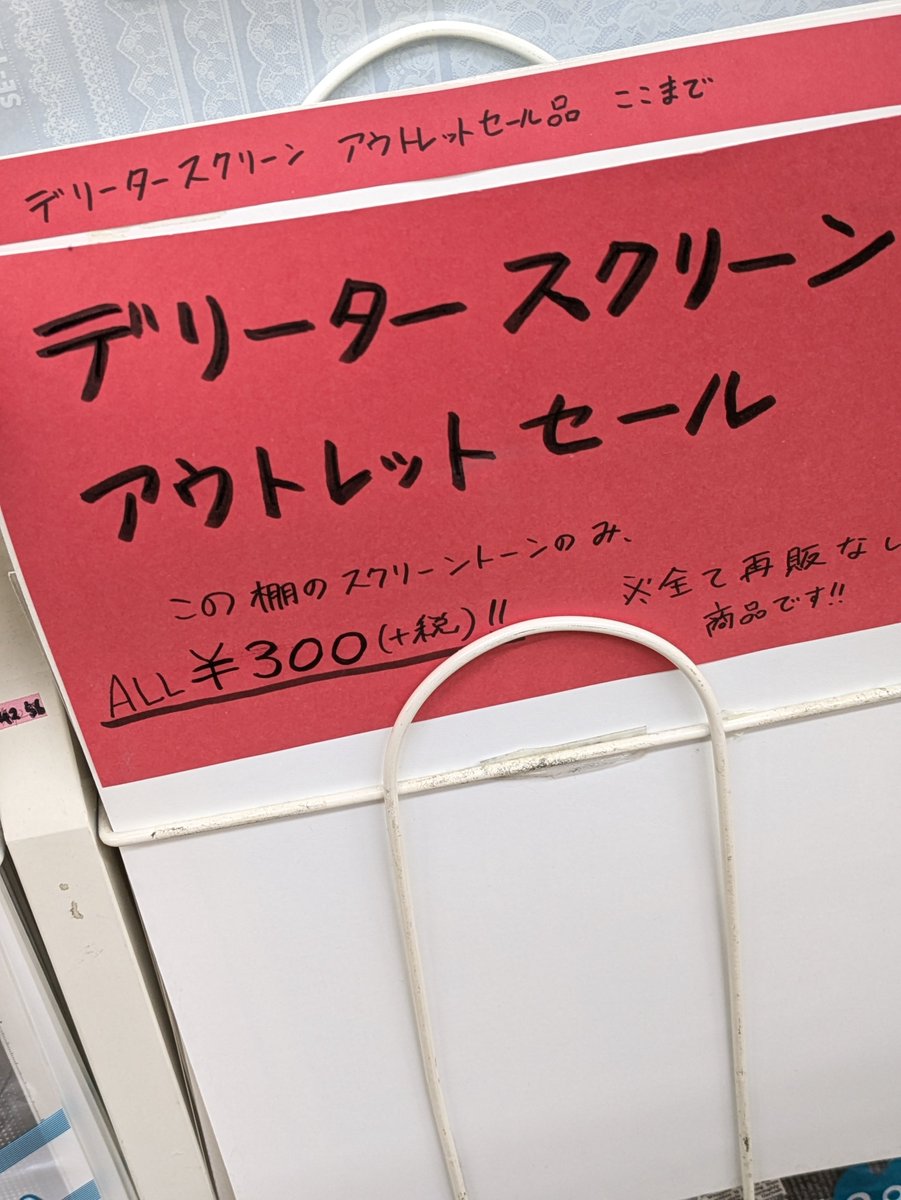 デリータースクリーン アウトレットセール品 ここまで
デリーター スクリーン
アウトレット セール
この棚のスクリーントーンのみ、
ALL ¥300(+税)!!
※全て再販なし
商品です!!